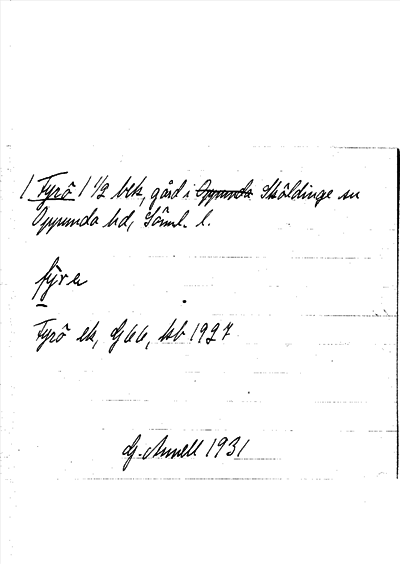 1 Fyrö 1 1/2 bek, gård i Oppunda Sköldinge sn
Oppunda hd, Söml. l.
fýrɷ
Fyrö ek, G 66, kb 1927
G. Annell 1931